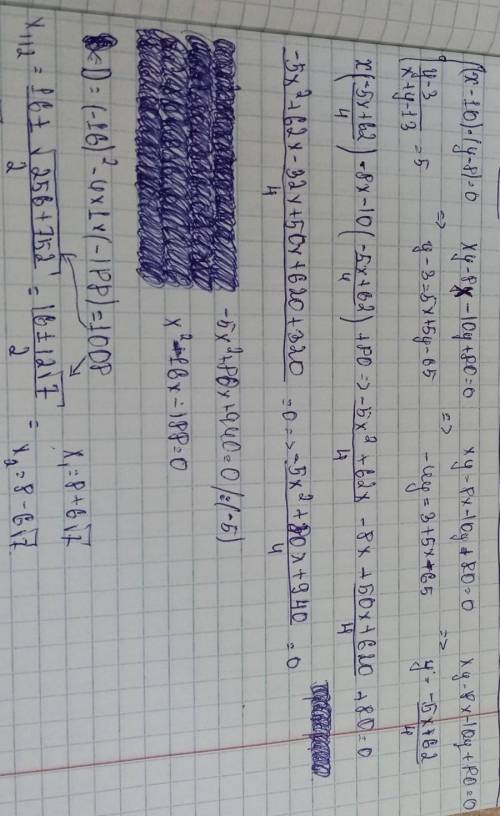 {(x-10)·(y-8)=0   xy-8x-10y+80=0   xy-8x-10y+80=0   xy-8x-10y+80=0
y-3/x+y-13 =5   =>   y-3=5x+5y-65   =>   -4y=3+5x-65   =>   y=-5x+62/4
x(-5x+62/4)-8x-10(-5x+62/4)+80=>-5x²+62x/4-8x+50x+620/4+80=0
-5x²+62x-32x+50x+620+320/4=0=>-5x²+80x+940/4=0
-5x²+80x+940=0/:(-5)
x²-16x-188=0
D=(-16)²-4x1x(-188)=1008
x1/2=16±√256+752/2=16±12√7/2= x₁=8+6√7
x₂=8-6√7